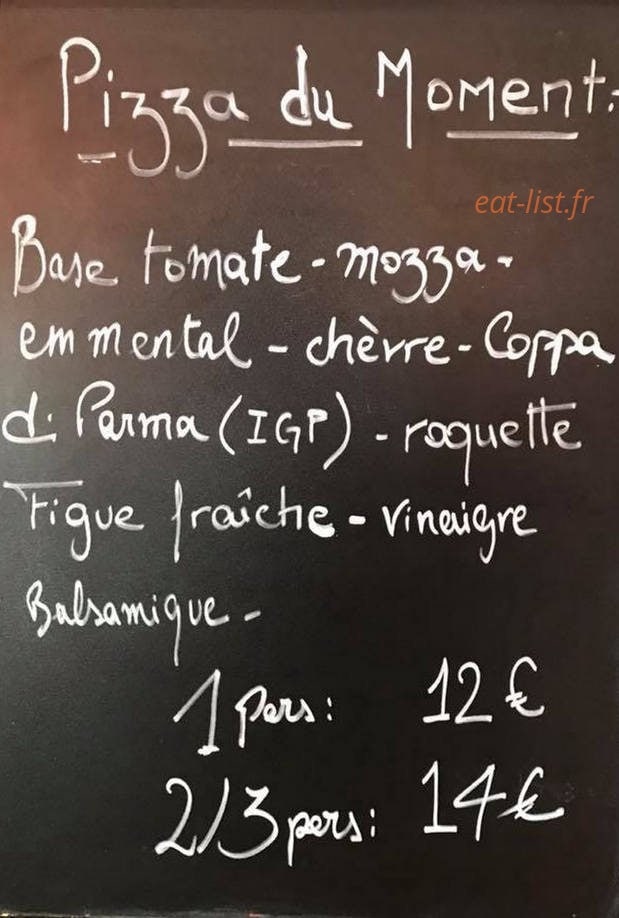 Pizza du Moment.
eat-list.fr
Base tomate - mozza -
emmental - chèvre - Coppa
di Parma (IGP) - roquette
Figue fraîche - vinaigre
Balsamique -
1 pers : 12 €
2/3 pers : 14 €